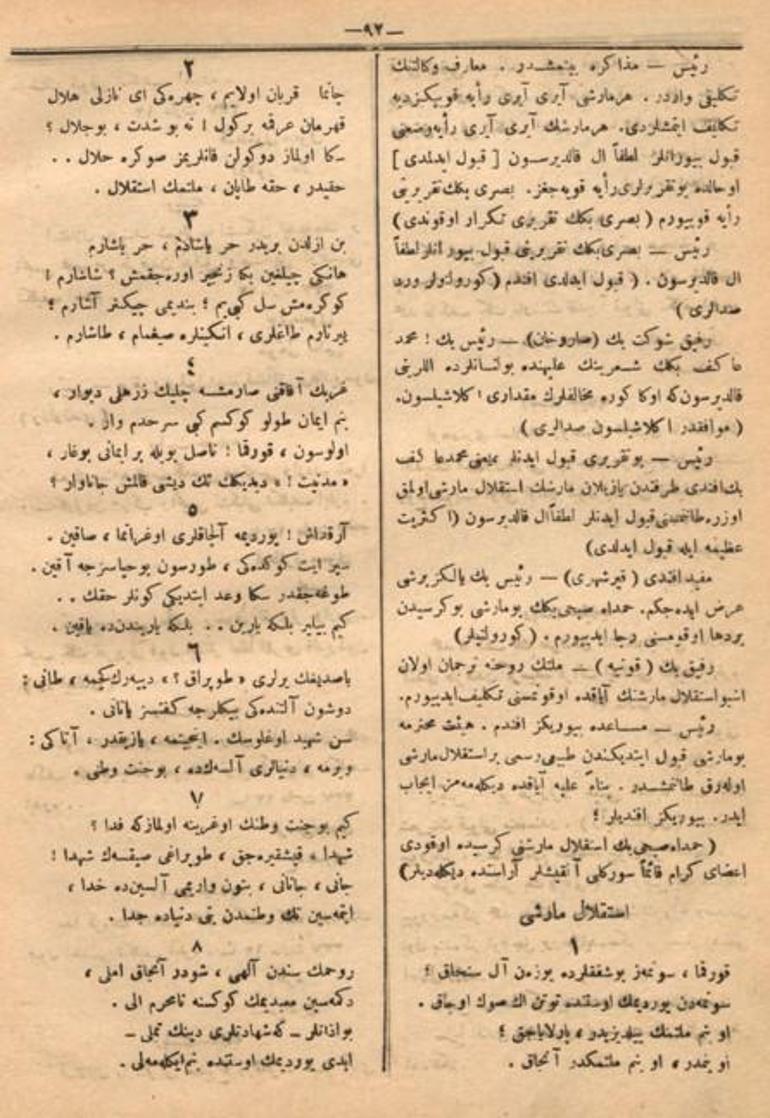 —٩٢—
رئیس — مذاکره بیتمشدر . معارف وکالتنك
تکلیفی واردر . هرمارشی آیری آیری رأیه قویبکز دیه
تکلیف ایتمشلردی. هرمارشك آیری آیری رأیه وضعنی
قبول بیورانلر لطفاً ال قالدیرسون [ قبول ایدلمدی ]
اوحالده بوتقریرلری رأیه قویه جغز. بصری بکك تقریرینی
رأیه قویییورم ( بصری بکك تقریری تکرار اوقوندی )
رئیس — بصری بکك تقریرینی قبول بیورانلر لطفاً
ال قالدیرسون . ( قبول ایدلدی افندم ( کورولتولر ورد
صدالری )
رفیق شوکت بك (صاروخان) — رئیس بك ! محمد
عاکف بکك شعرینك علیهنده بولنانلرده اللرینی
قالدیرسون که اوکا کوره مخالفلرك مقداری آکلاشیلسون.
( موافقدر آکلاشیلسون صدالری )
رئیس — بوتقریری قبول ایدنلر ، یعنی محمد عاکف
بك افندی طرفندن یازیلان مارشك استقلال مارشی اولمق
اوزره طانیمنسنی قبول ایدنلر لطفاً ال قالدیرسون (اکثریت
عظیمه ایله قبول ایدلدی)
مفید افندی ( قیرشهری) — رئیس بك یالکز برشی
عرض ایده جکم. حمدالله صبحی بکك بومارشی بو کرسیدن
بردها اوقومسنی رجا ایدییورم . ( کورولتیلر)
رفیق بك ( قونیه ) — ملتك روحنه ترجمان اولان
اشبو استقلال مارشنك آیاقده اوقونمسنی تکلیف ایدییورم.
رئیس — مساعده بیوریکز افندم . هیئت محترمه
بومارشی قبول ایتدیکندن طبیعی رسمی بر استقلال مارشی
اوله‌رق طانیمشدر . بناءً علیه آیاقده دیکله‌مه‌مز ایجاب
ایدر. بیوریکز افندیلر !
( حمدالله صبحی بك استقلال مارشنی کرسیده اوقودی
اعضای کرام قائماً سورکلی آلقیشلر آراسنده دیکله‌دیلر)
استقلال مارشی
١
قورقما ، سونمز بو شفقلرده یوزن آل سنجاق ؛
سونمه‌دن یوردیمك اوستنده توتن اك صوك اوجاق .
او بنم ملتمك ییلدیزیدر ، پارلایاجق ؛
او بنمدر ، او بنم ملتمکدر آنجاق .
٢
چاتما قربان اولایم ، چهره‌کی ای نازلی هلال
قهرمان عرقمه برکول ! نه بو شدت ، بو جلال ؟
سکا اولماز دوکولن قانلریمز صوکره حلال . .
حقیدر ، حقه طاپان ، ملتمك استقلال .
٣
بن ازلدن بریدر حر یاشادم ، حر یاشارم
هانکی چیلغین بکا زنجیر اوره‌جقمش ؟ شاشارم !
کوکره‌مش سل کبی‌یم ؛ بندیمی چیکنر آشارم ؛
ییرتارم طاغلری ، انکینلره صیغمام ، طاشارم .
٤
غربك آفاقنی صارمشسه چلیك زرهلی دیوار ،
بنم ایمان طولو کوکسم کبی سرحدم وار .
اولوسون ، قورقما ! ناصل بویله بر ایمانی بوغار ،
« مدنیت ! » دیدیکك تك دیشی قالمش جاناوار ؟
٥
آرقداش ! یوردیمه آلچاقلری اوغراتما ، صاقین .
سپر ایت کوکده‌کی ، طورسون بو حیاسزجه آقین .
طوغه‌جقدر سکا وعد ایتدیکی کونلر حقك . .
کیم بیلیر بلکه یارین . . بلکه یاریندن ده یاقین .
٦
باصدیغك یرلری « طوپراق ؟ » دییه‌رك کچمه ، طانی :
دوشون آلتنده‌کی بیکلرجه کفنسز یاتانی .
سن شهید اوغلوسك . اینجیتمه ، یازیقدر ، آتاکی :
ویرمه ، دنیالری آلسه‌ك ده ، بو جنت وطنی .
٧
کیم بو جنت وطنك اوغرینه اولمازکه فدا ؟
شهدا ، فیشقیره‌جق ، طوپراغی صیقسه‌ك شهدا !
جانی ، جانانی ، بتون واریمی آلسین ده خدا ،
ایتمه‌سین تك وطنمدن بنی دنیاده جدا .
٨
روحمك سندن آلهی ، شودر آنجاق املی ،
دکمه‌سین معبدیمك کوکسنه نامحرم الی .
بو اذانلر ــ که شهادتلری دینك تملی ــ
ابدی یوردیمك اوستنده بنم ایکله‌مه‌لی .